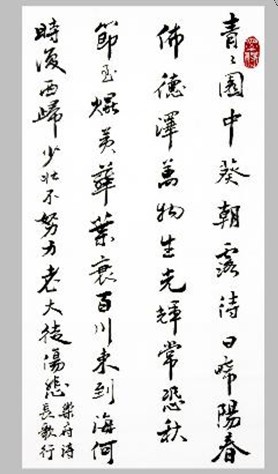 青〻園中葵朝露待日晞陽春
佈德澤萬物生光輝常恐秋
節至焜黃華葉衰百川東到海何
時復西歸少壯不努力老大徒傷悲
樂府詩
長歌行